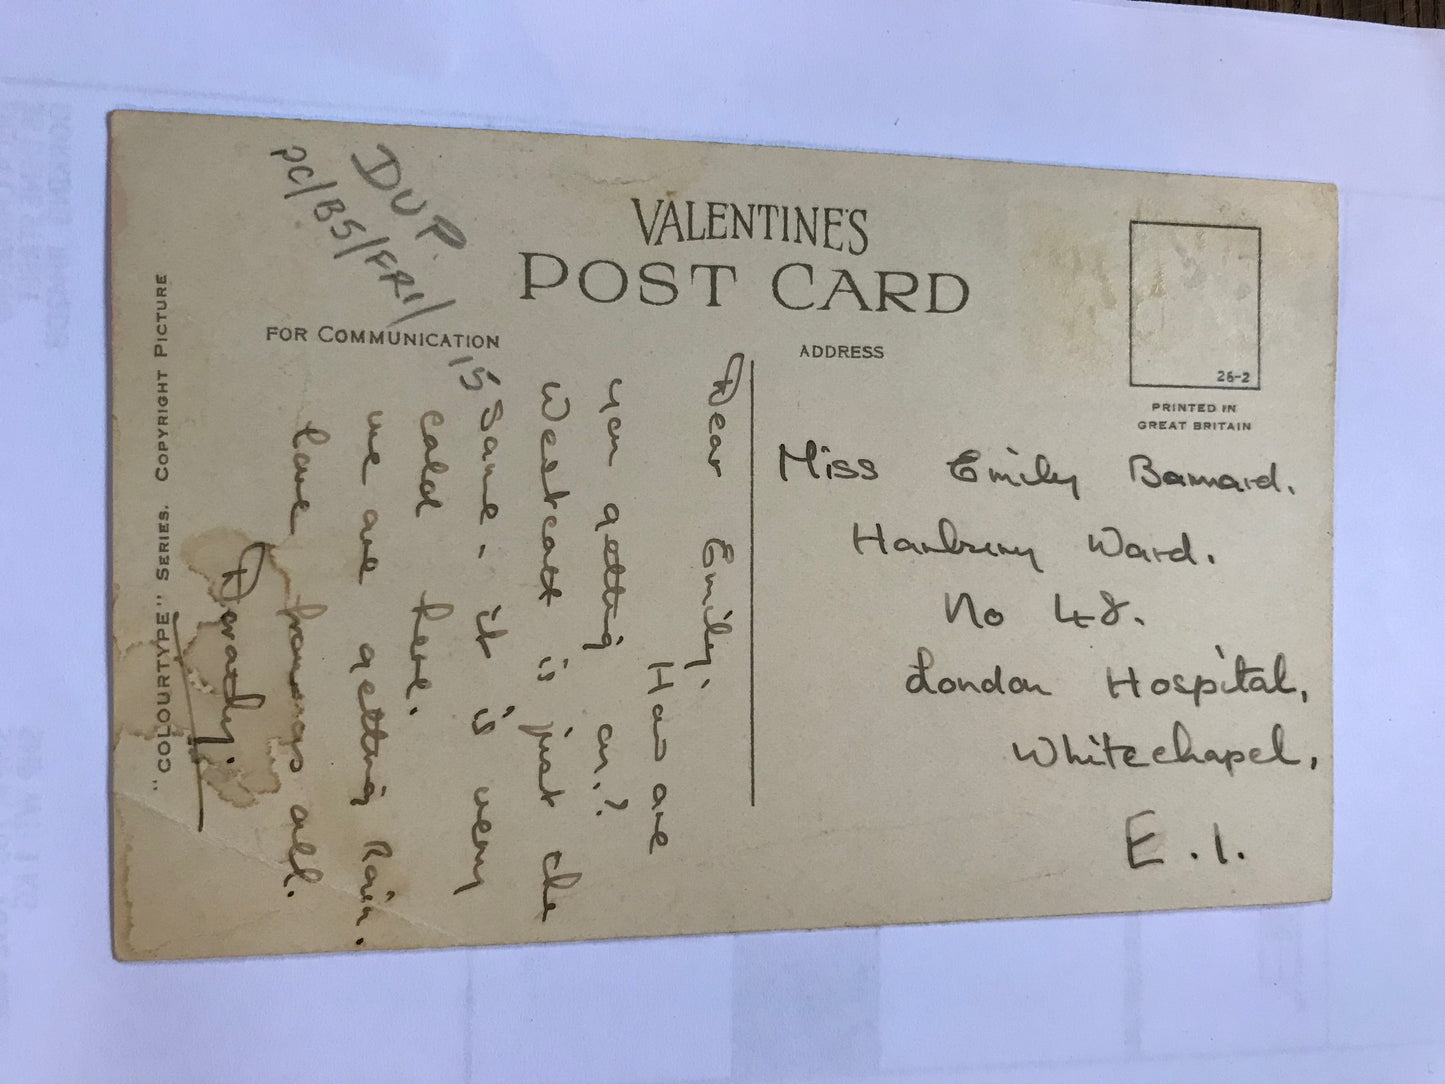 DUP.
PC/BS/FRI/
15
VALENTINE'S
POST CARD
FOR COMMUNICATION
ADDRESS
26-2
PRINTED IN
GREAT BRITAIN
"COLOURTYPE" SERIES. COPYRIGHT PICTURE
Dear Emily,
How are
you getting on?
Westcott is just the
same - it is very
cold here.
we are getting Rain.
love from us all.
Dorothy.
Miss Emily Barnard.
Hanbury Ward.
No 48.
London Hospital,
Whitechapel,
E.1.